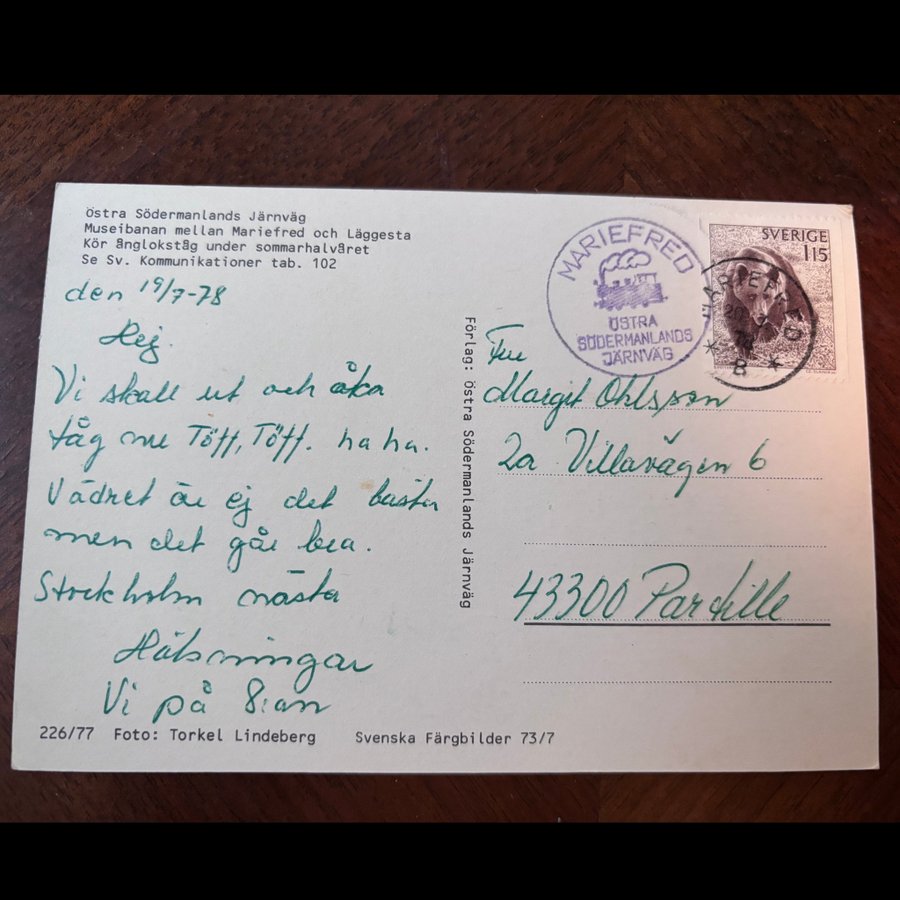 Östra Södermanlands Järnväg
Museibanan mellan Mariefred och Läggesta
Kör ånglokståg under sommarhalvåret
Se Sv. Kommunikationer tab. 102
den 19/7-78
Hej.
Vi skall ut och åka
tåg nu Töff, Töff. ha ha.
Vädret är ej det bästa
men det går bra.
Stockholm nästa
Hälsningar
Vi på 8:an
226/77 Foto: Torkel Lindeberg Svenska Färgbilder 73/7
Förlag: Östra Södermanlands Järnväg
MARIEFRED
ÖSTRA
SÖDERMANLANDS
JÄRNVÄG
SVERIGE
115
MARIEFRED
* B *
Fru
Margit Ohlsson
2a Villavägen 6
43300 Partille